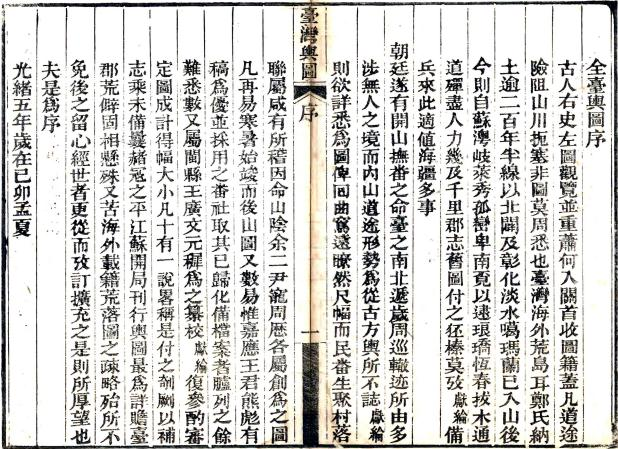 全臺輿圖序
古人右史左圖觀覽並重蕭何入關首收圖籍蓋凡道途
險阻山川扼塞非圖莫周悉也臺灣海外荒島耳鄭氏納
土逾二百年半線以北闢及彰化淡水噶瑪蘭已入山後
今則自蘇澳岐萊秀孤巒卑南覓以達琅璚恆春拔木通
道殫盡人力幾及千里郡志舊圖付之狉榛莫攷獻綸備
兵來此適值海疆多事
朝廷遂有開山撫番之命臺之南北遞歲周巡轍迹所由多
涉無人之境而內山道途形勢為從古方輿所不誌獻綸
則欲詳悉為圖俾回曲窵遠瞭然尺幅而民番生聚村落
臺灣輿圖
序
一
聯屬咸有所稽因命山陰余二尹寵周歷各屬創為之圖
凡再易寒暑始竣而後山圖又數易惟嘉應王君熊彪有
稿為優並採用之番社取其已歸化備檔案者臚列之餘
難悉數又屬閩縣王廣文元穉為之纂校獻綸復參酌審
定圖成計得幅大小凡十有一說畧稱是付之剞劂以補
志乘未備曩赭寇之平江蘇開局刊行輿圖最為詳贍臺
郡荒僻固相懸殊又苦海外載籍荒落圖之疎略殆所不
免後之留心經世者更從而攷訂擴充之是則所厚望也
夫是為序
光緒五年歲在己卯孟夏